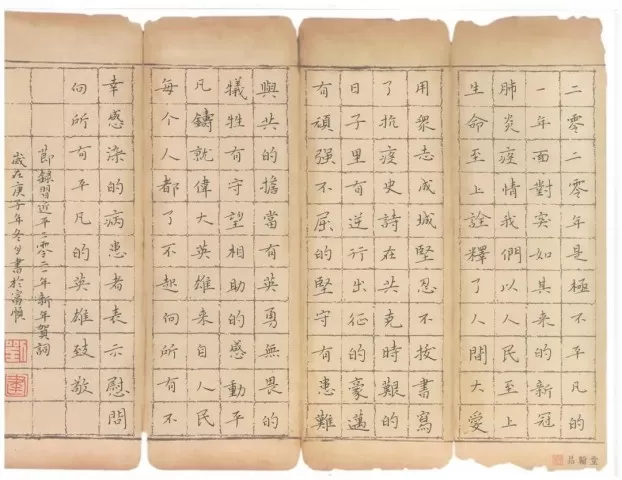 二零二零年是極不平凡的
一年面對突如其来的新冠
肺炎疫情我們以人民至上
生命至上詮釋了人間大愛
用衆志成城堅忍不拔書寫
了抗疫史詩在共克時艱的
日子里有逆行出征的豪邁
有頑强不屈的堅守有患難
與共的擔當有英勇無畏的
犧牲有守望相助的感動平
凡鑄就偉大英雄来自人民
每个人都了不起向所有不
幸感染的病患者表示慰問
向所有平凡的英雄致敬
節録習近平二零二一年新年賀詞
歲在庚子年冬月書於富順
翰堂